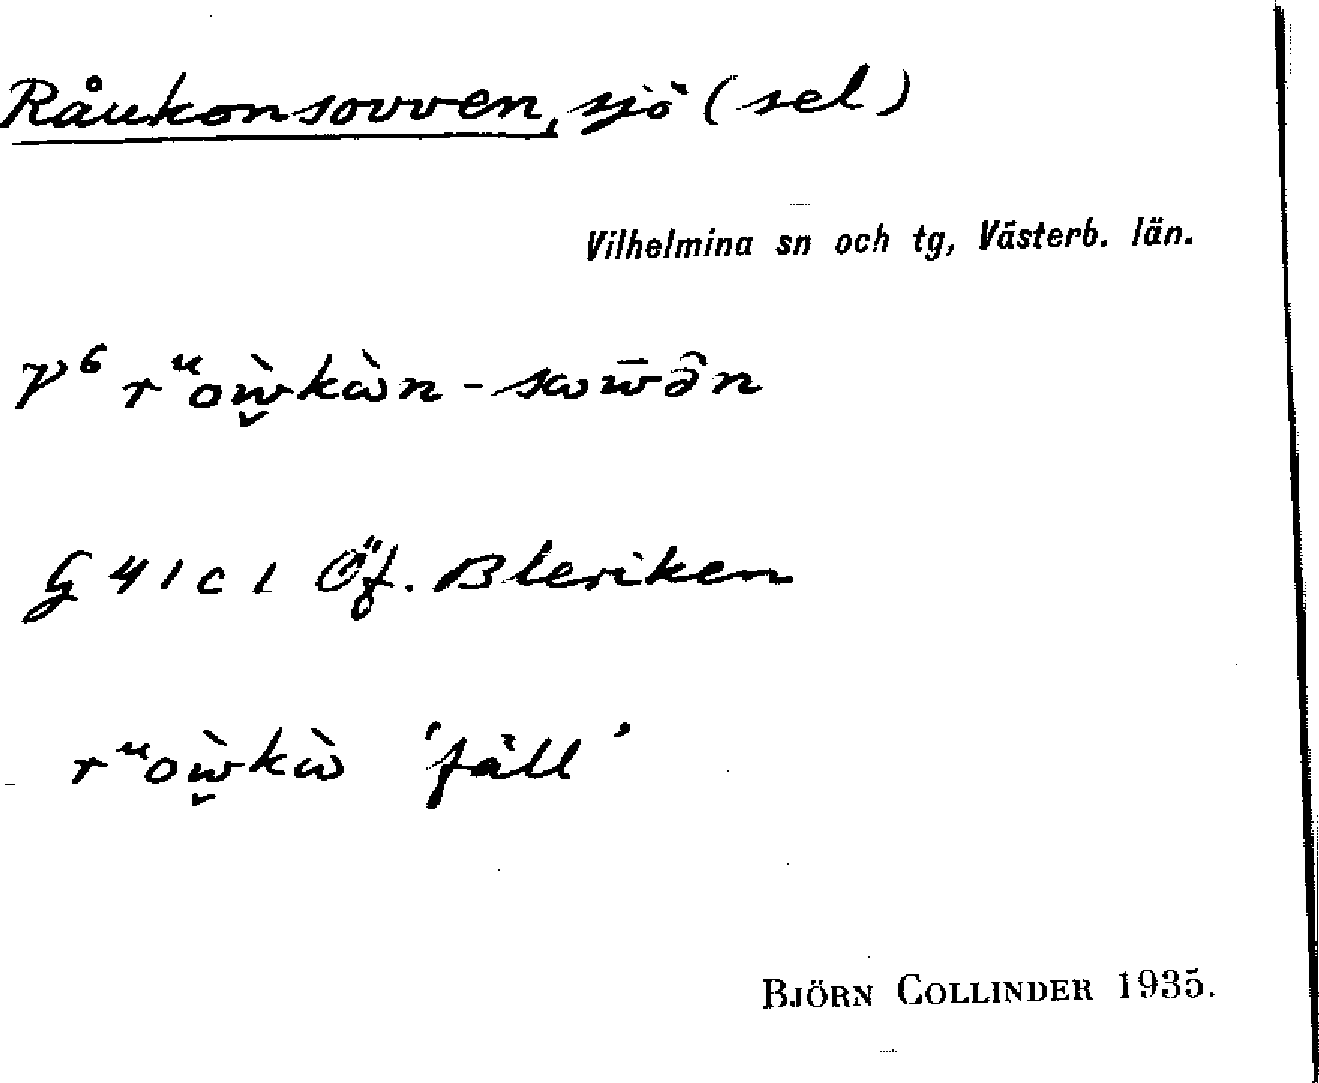 Råukonsovven, sjö (sel)
Vilhelmina sn och tg, Västerb. län.
V⁶ rᵘoẁ̬kὼn - sωw̄ə̑n
G 41 c 1 Öf. Bleriken
rᵘoẁ̬kὼ 'fäll'
BJÖRN COLLINDER 1935.